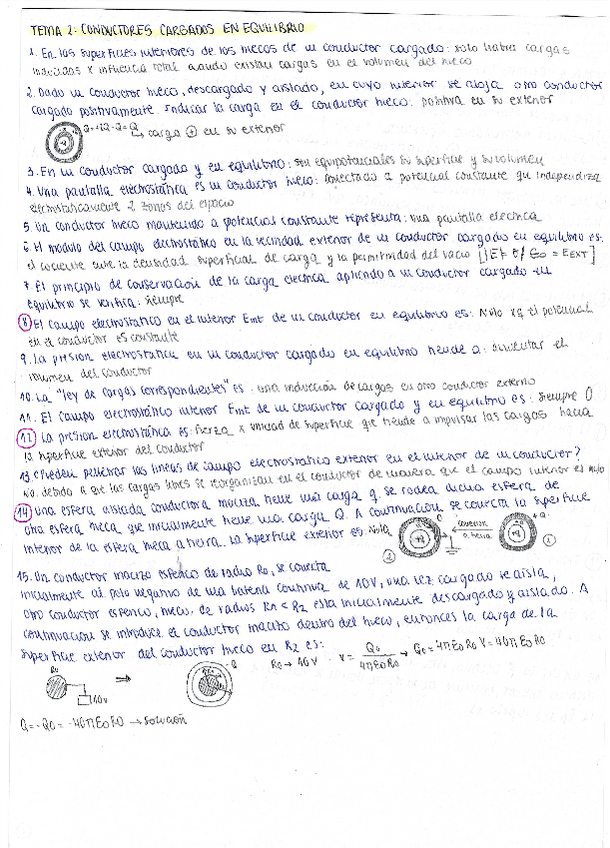 TEMA 2: CONDUCTORES CARGADOS EN EQUILIBRIO
1. En las superficies interiores de los huecos de un conductor cargado: solo habrá cargas
inducidas x influencia total cuando existan cargas en el volumen del hueco
2. Dado un conductor hueco, descargado y aislado, en cuyo interior se aloja otro conductor
cargado positivamente. Indicar la carga en el conductor hueco: positiva en su exterior
carga + en su exterior
3. En un conductor cargado y en equilibrio: son equipotenciales su superficie y su volumen
4. Una pantalla electrostática es un conductor hueco: conectado a potencial constante que independiza
electrostáticamente 2 zonas del espacio
5. Un conductor hueco mantenido a potencial constante representa: una pantalla eléctrica
6. El módulo del campo electrostático en la vecindad exterior de un conductor cargado en equilibrio es:
el cociente entre la densidad superficial de carga y la permitividad del vacío [|E| = σ/ε0 = EEXT]
7. El principio de conservación de la carga eléctrica aplicado a un conductor cargado en
equilibrio se verifica: siempre
8 El campo electrostático en el interior Eint de un conductor en equilibrio es: Nulo xq el potencial
en el conductor es constante
9. La presión electrostática en un conductor cargado en equilibrio tiende a: aumentar el
volumen del conductor
10. La "ley de cargas correspondientes" es: una inducción de cargas en otro conductor externo
11. El campo electrostático interior Eint de un conductor cargado y en equilibrio es: siempre 0
12 La presión electrostática es: fuerza x unidad de superficie que tiende a impulsar las cargas hacia
la superficie exterior del conductor
13. ¿Pueden penetrar las líneas de campo electrostático exterior en el interior de un conductor?
No, debido a que las cargas libres se reorganizan en el conductor de manera que el campo interior es nulo
14 Una esfera aislada conductora maciza tiene una carga q. se rodea dicha esfera de
otra esfera hueca que inicialmente tiene una carga Q. A continuación se conecta la superficie
interior de la esfera hueca a tierra. La superficie exterior es: Nula
conexión
a tierra
+Q
15. Un conductor macizo esférico de radio R0, se conecta
inicialmente al polo negativo de una batería continua de 10V, una vez cargado se aísla,
otro conductor esférico, hueco, de radios R1 < R2 está inicialmente descargado y aislado. A
continuación se introduce el conductor macizo dentro del hueco, entonces la carga de la
superficie exterior del conductor hueco en R2 es:
R0
10V
R0 → 10V
V = Q0/4πε0R0 → Q0 = 4πε0R0 V = 40πε0R0
Q = -Q0 = -40πε0R0 → solución